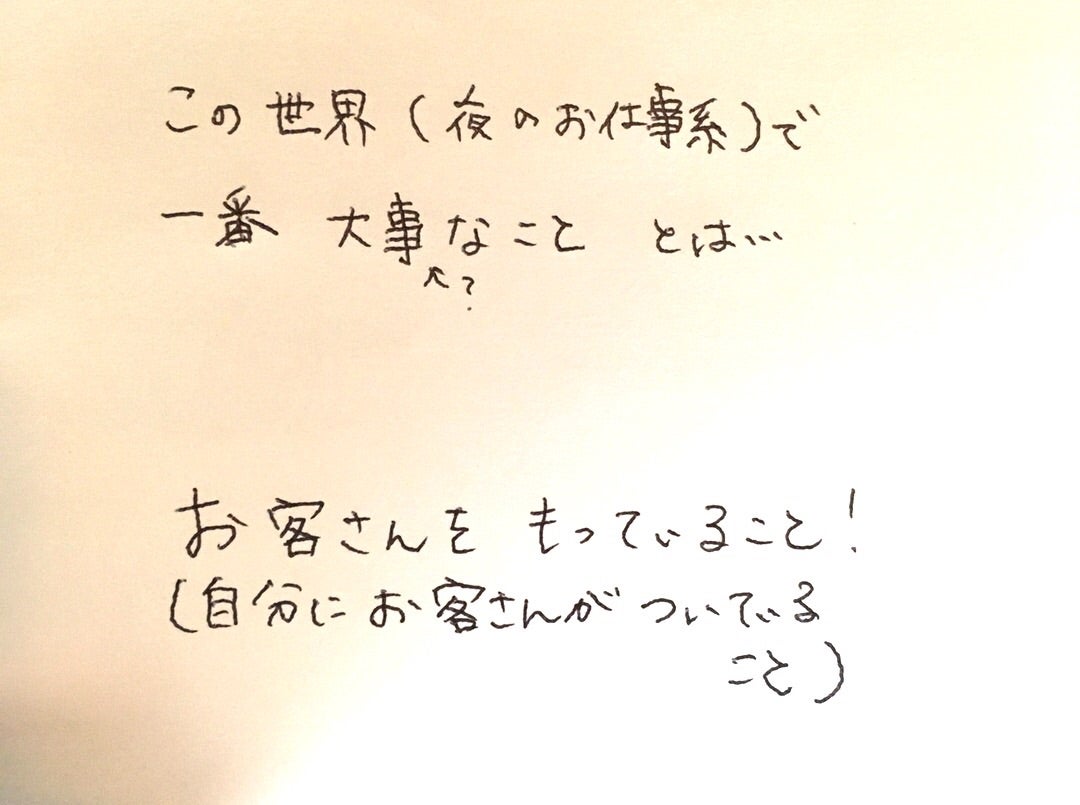 この世界(夜のお仕事系)で
一番 大事なこと とは…
↖?
お客さんを もっていること!
(自分にお客さんが ついている
こと)